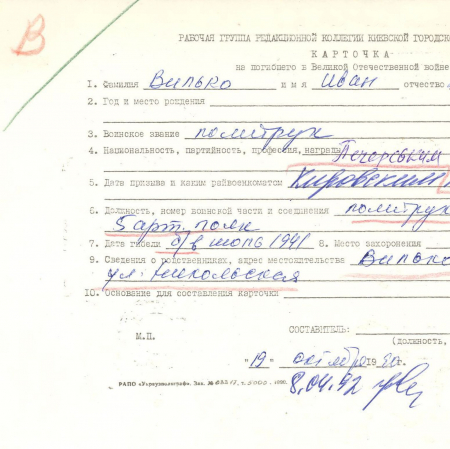 В
РАБОЧАЯ ГРУППА РЕДАКЦИОННОЙ КОЛЛЕГИИ КИЕВСКОЙ ГОРОДСК
КАРТОЧКА
на погибшего в Великой Отечественной войне
1. Фамилия Вилько имя Иван отчество
2. Год и место рождения
3. Воинское звание политрук
4. Национальность, партийность, профессия, награды
Печерським
5. Дата призыва и каким райвоенкоматом Кировским
6. Должность, номер воинской части и соединения политрук
5 арт. полк
7. Дата гибели б/в июль 1941 8. Место захоронения
9. Сведения о родственниках, адрес местожительства Вилько
ул. Никольская
10. Основание для составления карточки
СОСТАВИТЕЛЬ:
М.П. (должность,
"19" октября 1990г.
РАПО «Укрвузполиграф». Зак. №
8.04.92